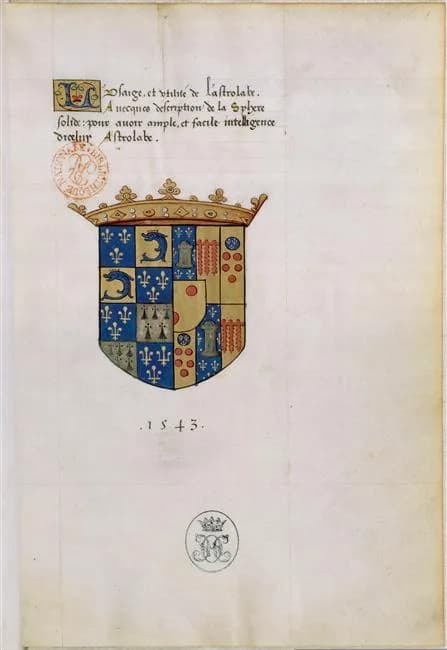 L Vsaige, et vtilité de l'astrolabe.
Auecques description de la Sphere
solide: pour auoir ample, et facile intelligence
d'iceluy Astrolabe.
.1543.